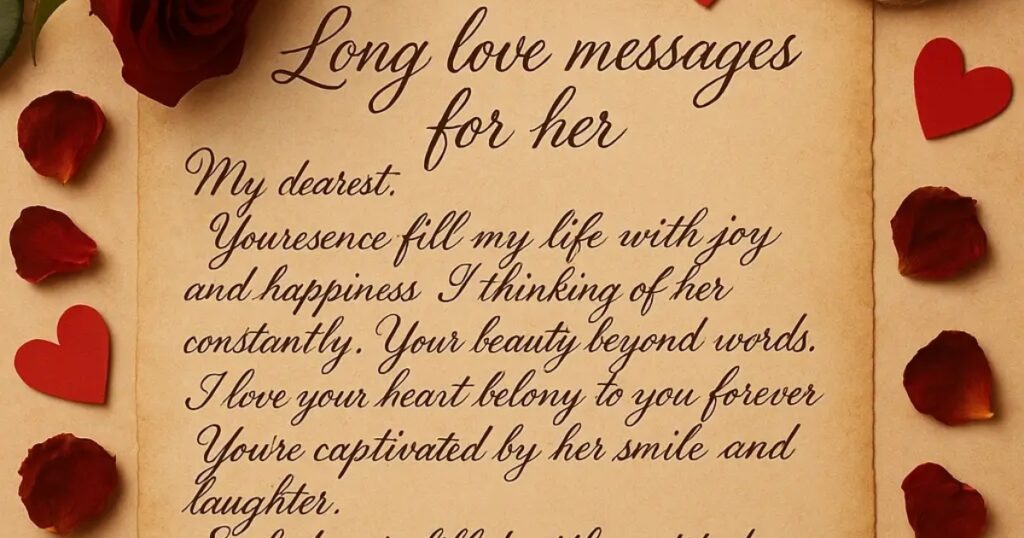 Long love messages
for her
My dearest.
Youresence fill my life with joy
and happiness I thinking of her
constantly. Your beauty beyond words.
I love your heart belony to you forever
You're captivated by her smile and
laughter.